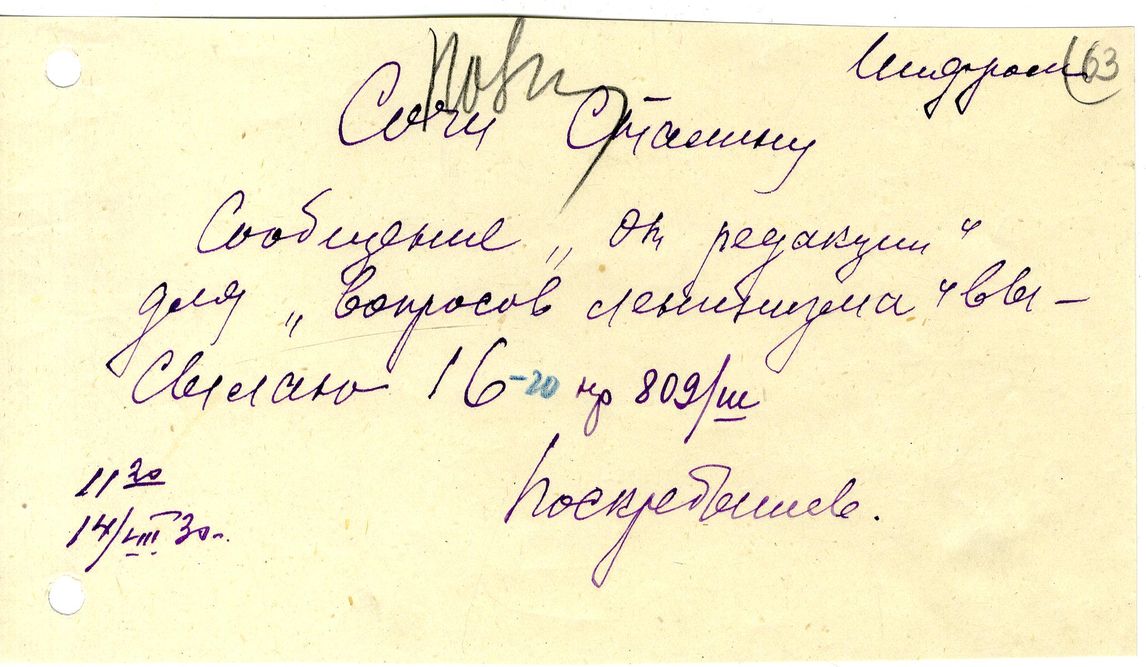 Шифром 63
Сочи Сталину
Сообщение „От редакции“
для „Вопросов ленинизма“ вы-
сылаю 16-го нр 809/ш
Поскребышев.
11 30
14/VIII 30 г.